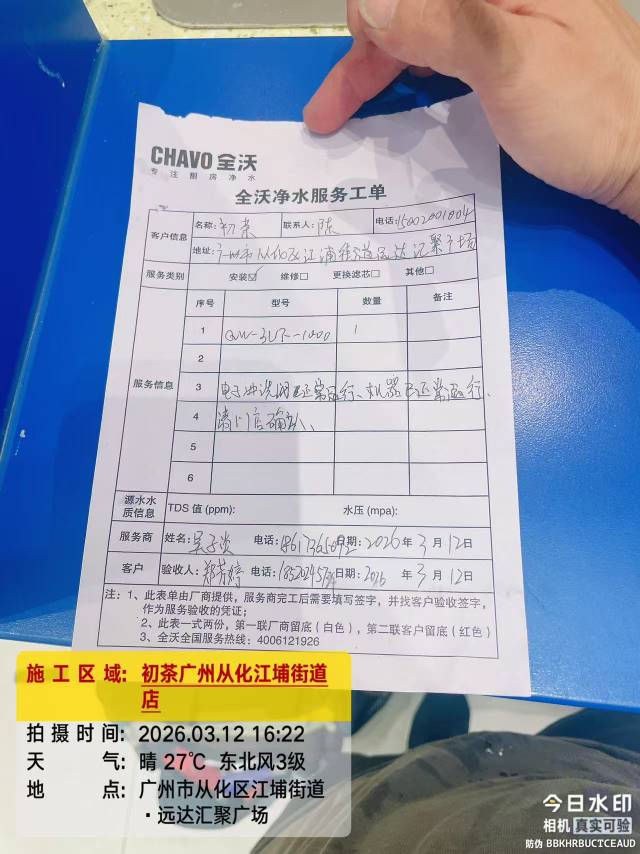 CHAVO 全沃
专注厨房净水
全沃净水服务工单
客户信息
名称: 初茶 联系人: 陈 电话: 15002001004
地址: 广州市从化区江浦街道远达汇聚广场
服务类别 安装☑ 维修□ 更换滤芯□ 其他□
服务信息
序号 型号 数量 备注
1 QW-3UF-1000 1
2
3 电子冲洗阀已正常运行、机器已正常运行、
4 请门店确认、
5
6
源水水质信息 TDS 值 (ppm): 水压 (mpa):
服务商 姓名: 电话: 日期: 2026 年 3 月 12 日
客户 验收人: 郑芳婷 电话: 日期: 2026 年 3 月 12 日
注: 1、此表单由厂商提供, 服务商完工后需要填写签字, 并找客户验收签字,
作为服务验收的凭证;
2、此表一式两份, 第一联厂商留底 (白色), 第二联客户留底 (红色)
3、全沃全国服务热线: 4006121926
施工区域: 初茶广州从化江埔街道
店
拍摄时间: 2026.03.12 16:22
天气: 晴 27℃ 东北风3级
地点: 广州市从化区江埔街道
·远达汇聚广场
今日水印
相机 真实可验
防伪 BBKHRBUCTCEAUD